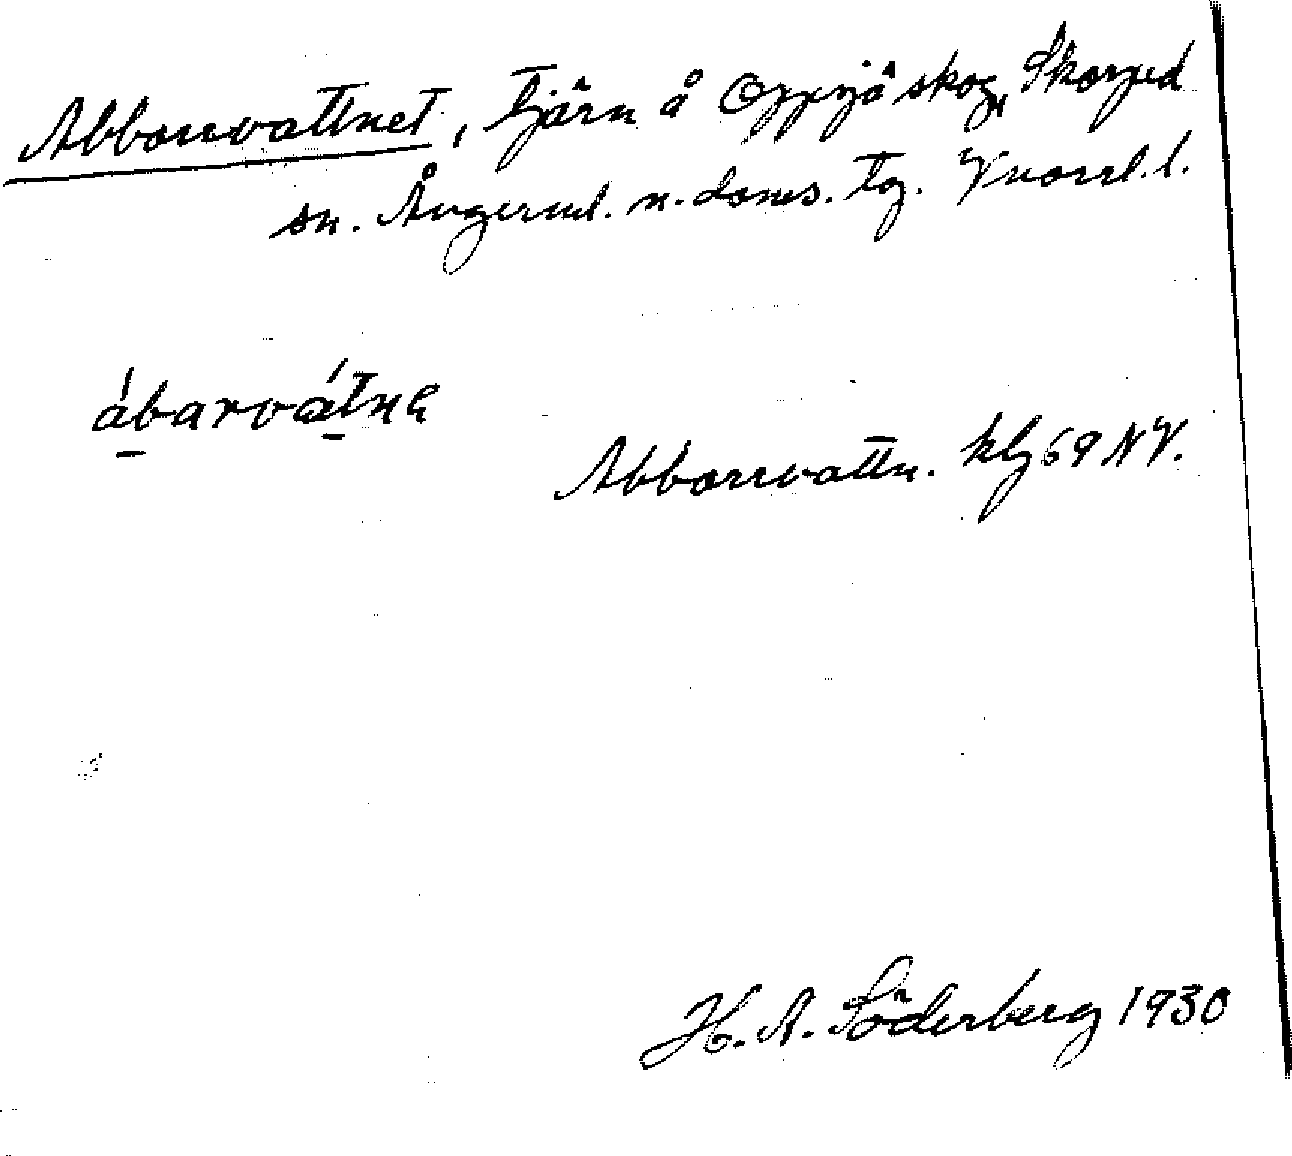 Abborrvattnet, tjärn å Oppsjö skog, Skorped
sn. Ångerml. n. doms. tg. Vnorrl. l.
ábarvátnɐ
Abborrvattn. kbl 69 NV.
H. A. Söderberg 1930